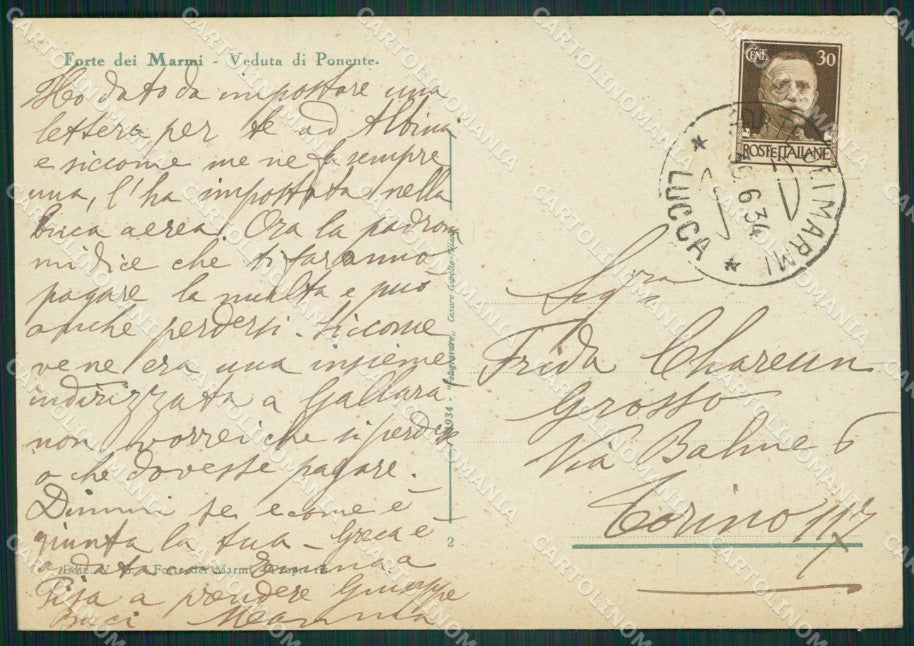 Forte dei Marmi - Veduta di Ponente.
Ho dato da impostare una
lettera per te ad Albina
e siccome me ne fa sempre
una, l'ha impostata nella
buca aerea. Ora la padrona
mi dice che ti faranno
pagare la multa e può
anche perdersi. Siccome
ve ne era una insieme
indirizzata a Gallarà
non vorrei che si perda
o che dovesse pagare.
Dimmi se e come è
giunta la tua - Greca è
andata con Emma a
Pisa a prendere Giuseppe
Baci Mamma
Forte dei Marmi
1934
2
CENT. 30
POSTE ITALIANE
FORTE DEI MARMI
6 34
LUCCA
Sig.ra
Frida Chareun
Grosso
Via Balme 6
Torino 117
CARTOLINOMANIA